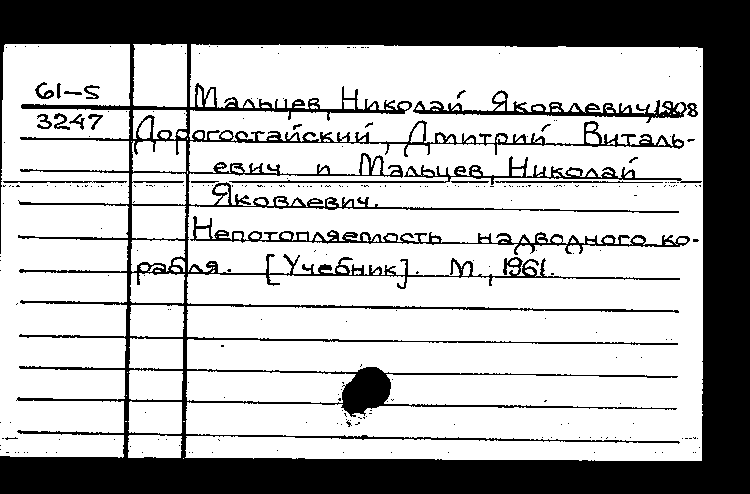 61-5 Мальцев, Николай Яковлевич, 1908
3247 Дорогостайский, Дмитрий Виталь-
евич и Мальцев, Николай
Яковлевич.
Непотопляемость надводного ко-
рабля. [Учебник]. М., 1961.